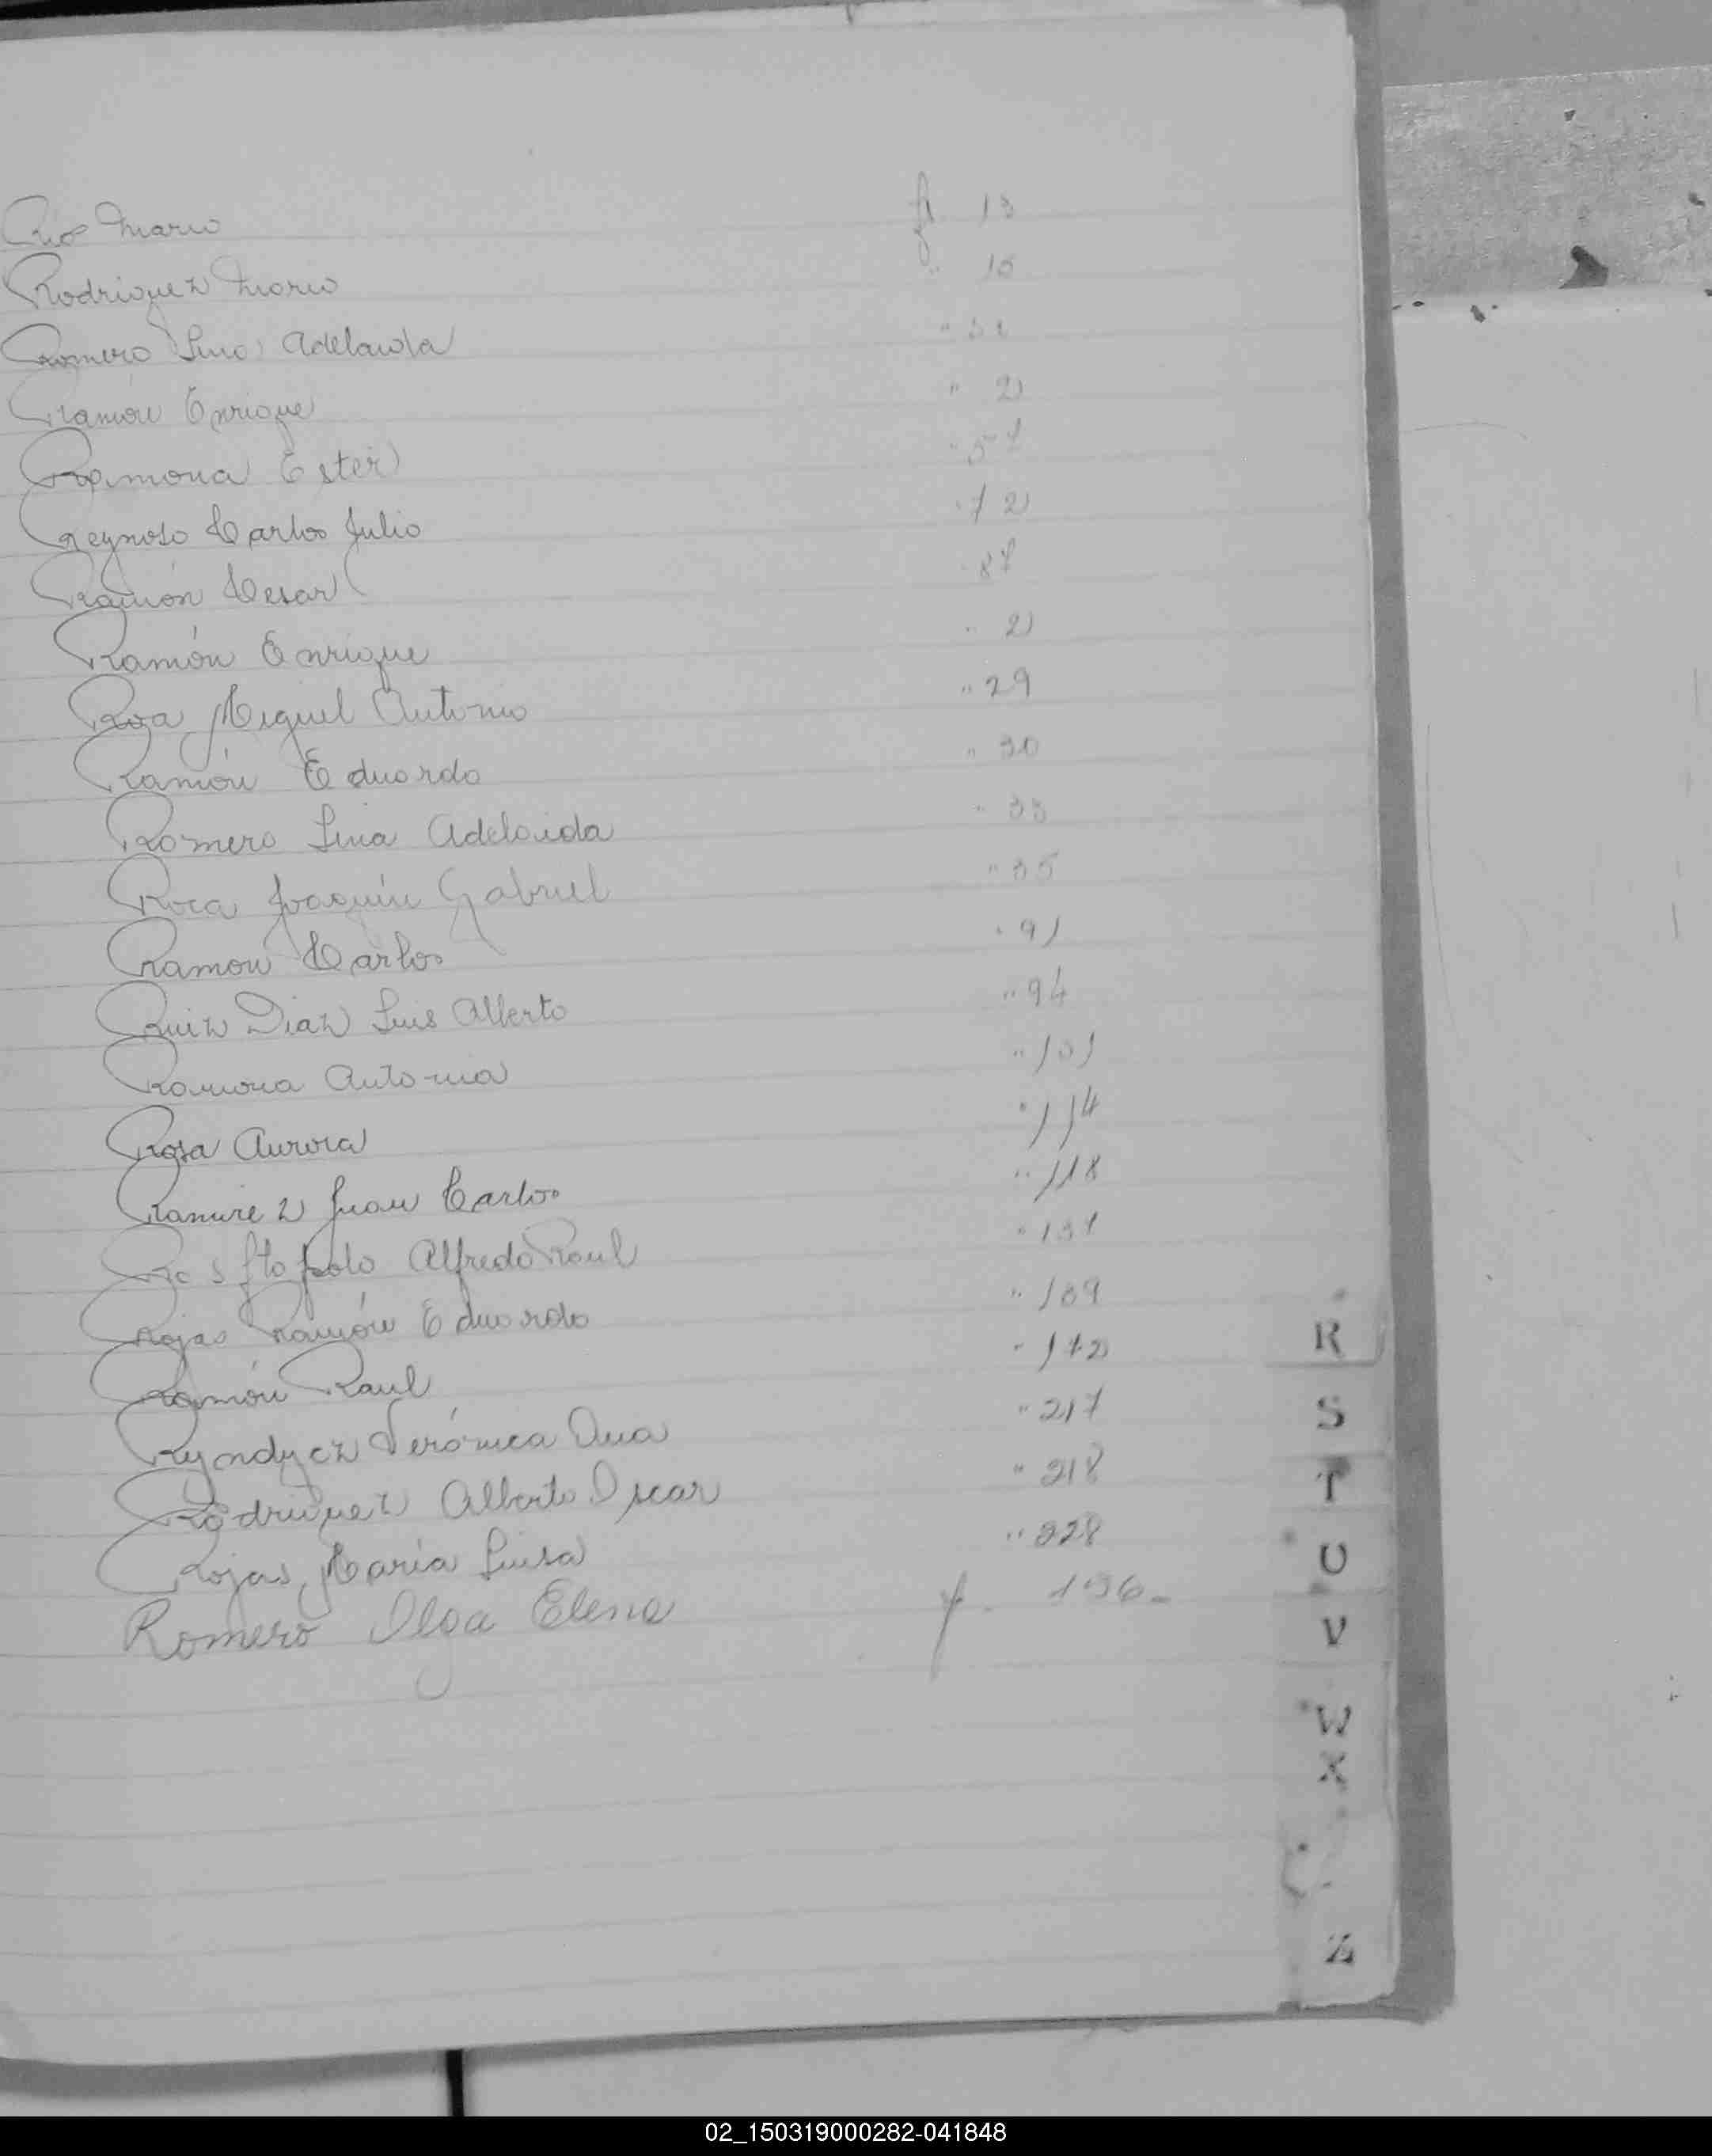 Mario fl 13
Rodriguez Mario " 15
Romero Lina Adelaida "
Ramón Enrique " 21
Ramona Ester " 57
Reynoso Carlos Julio " 72
Ramón Cesar " 87
Ramón Enrique " 21
Roa Miguel Antonio " 29
Ramón Eduardo " 30
Romero Lina Adelaida " 33
Roca Joaquín Gabriel " 35
Ramon Carlos " 91
Ruiz Diaz Luis Alberto " 94
Ramona Antonia " 101
Rosa Aurora " 114
Ramirez Juan Carlos " 118
Alfredo Raul "
Rojas Ramón Eduardo " 109
Ramón Raul " 172
Ryndycz Verónica Ana " 217
Rodriguez Alberto Oscar " 218
Rojas, María Luisa " 228
Romero Olga Elena f. 196-
R
S
T
U
V
W
X
Z
02_150319000282-041848